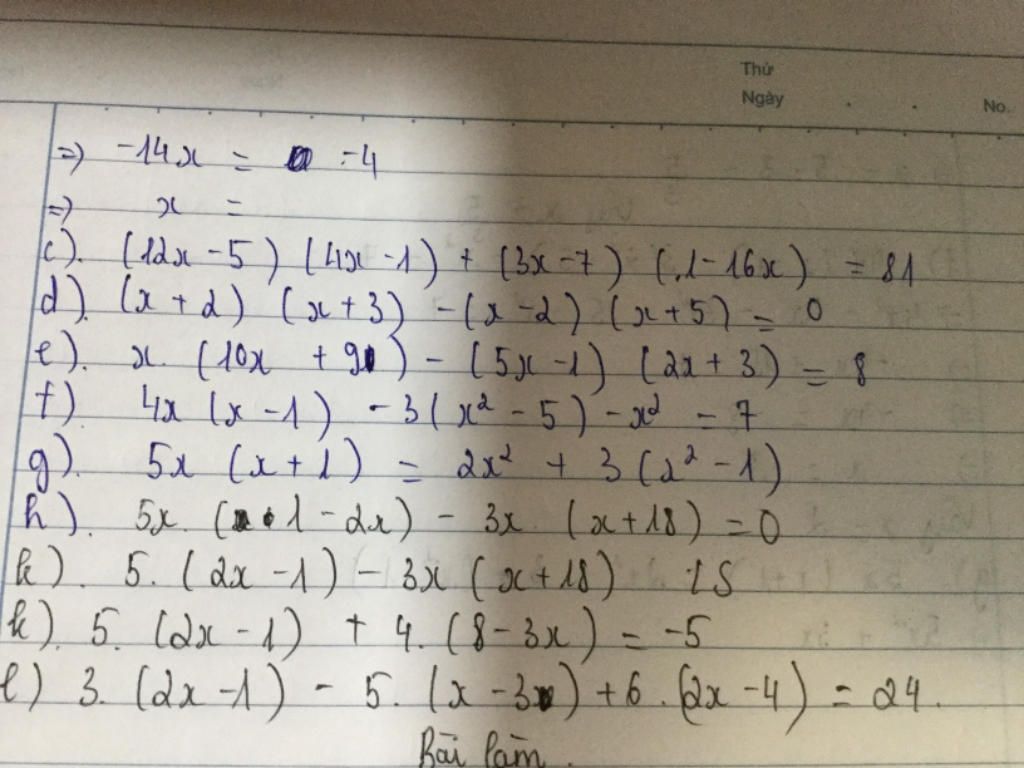 Thứ
Ngày
No.
=) -14x = -4
=) x =
c). (12x - 5) (4x - 1) + (3x - 7) (1 - 16x) = 81
d). (x + 2) (x + 3) - (x - 2) (x + 5) = 0
e). x. (10x + 9) - (5x - 1) (2x + 3) = 8
f) 4x (x - 1) - 3 (x² - 5) - x² = 7
g). 5x (x + 1) = 2x² + 3 (x² - 1)
h). 5x. (1 - 2x) - 3x (x + 18) = 0
k). 5. (2x - 1) - 3x (x + 18)
k). 5. (2x - 1) + 4. (8 - 3x) = -5
l) 3. (2x - 1) - 5. (x - 3) + 6. (2x - 4) = 24.
Bài làm.